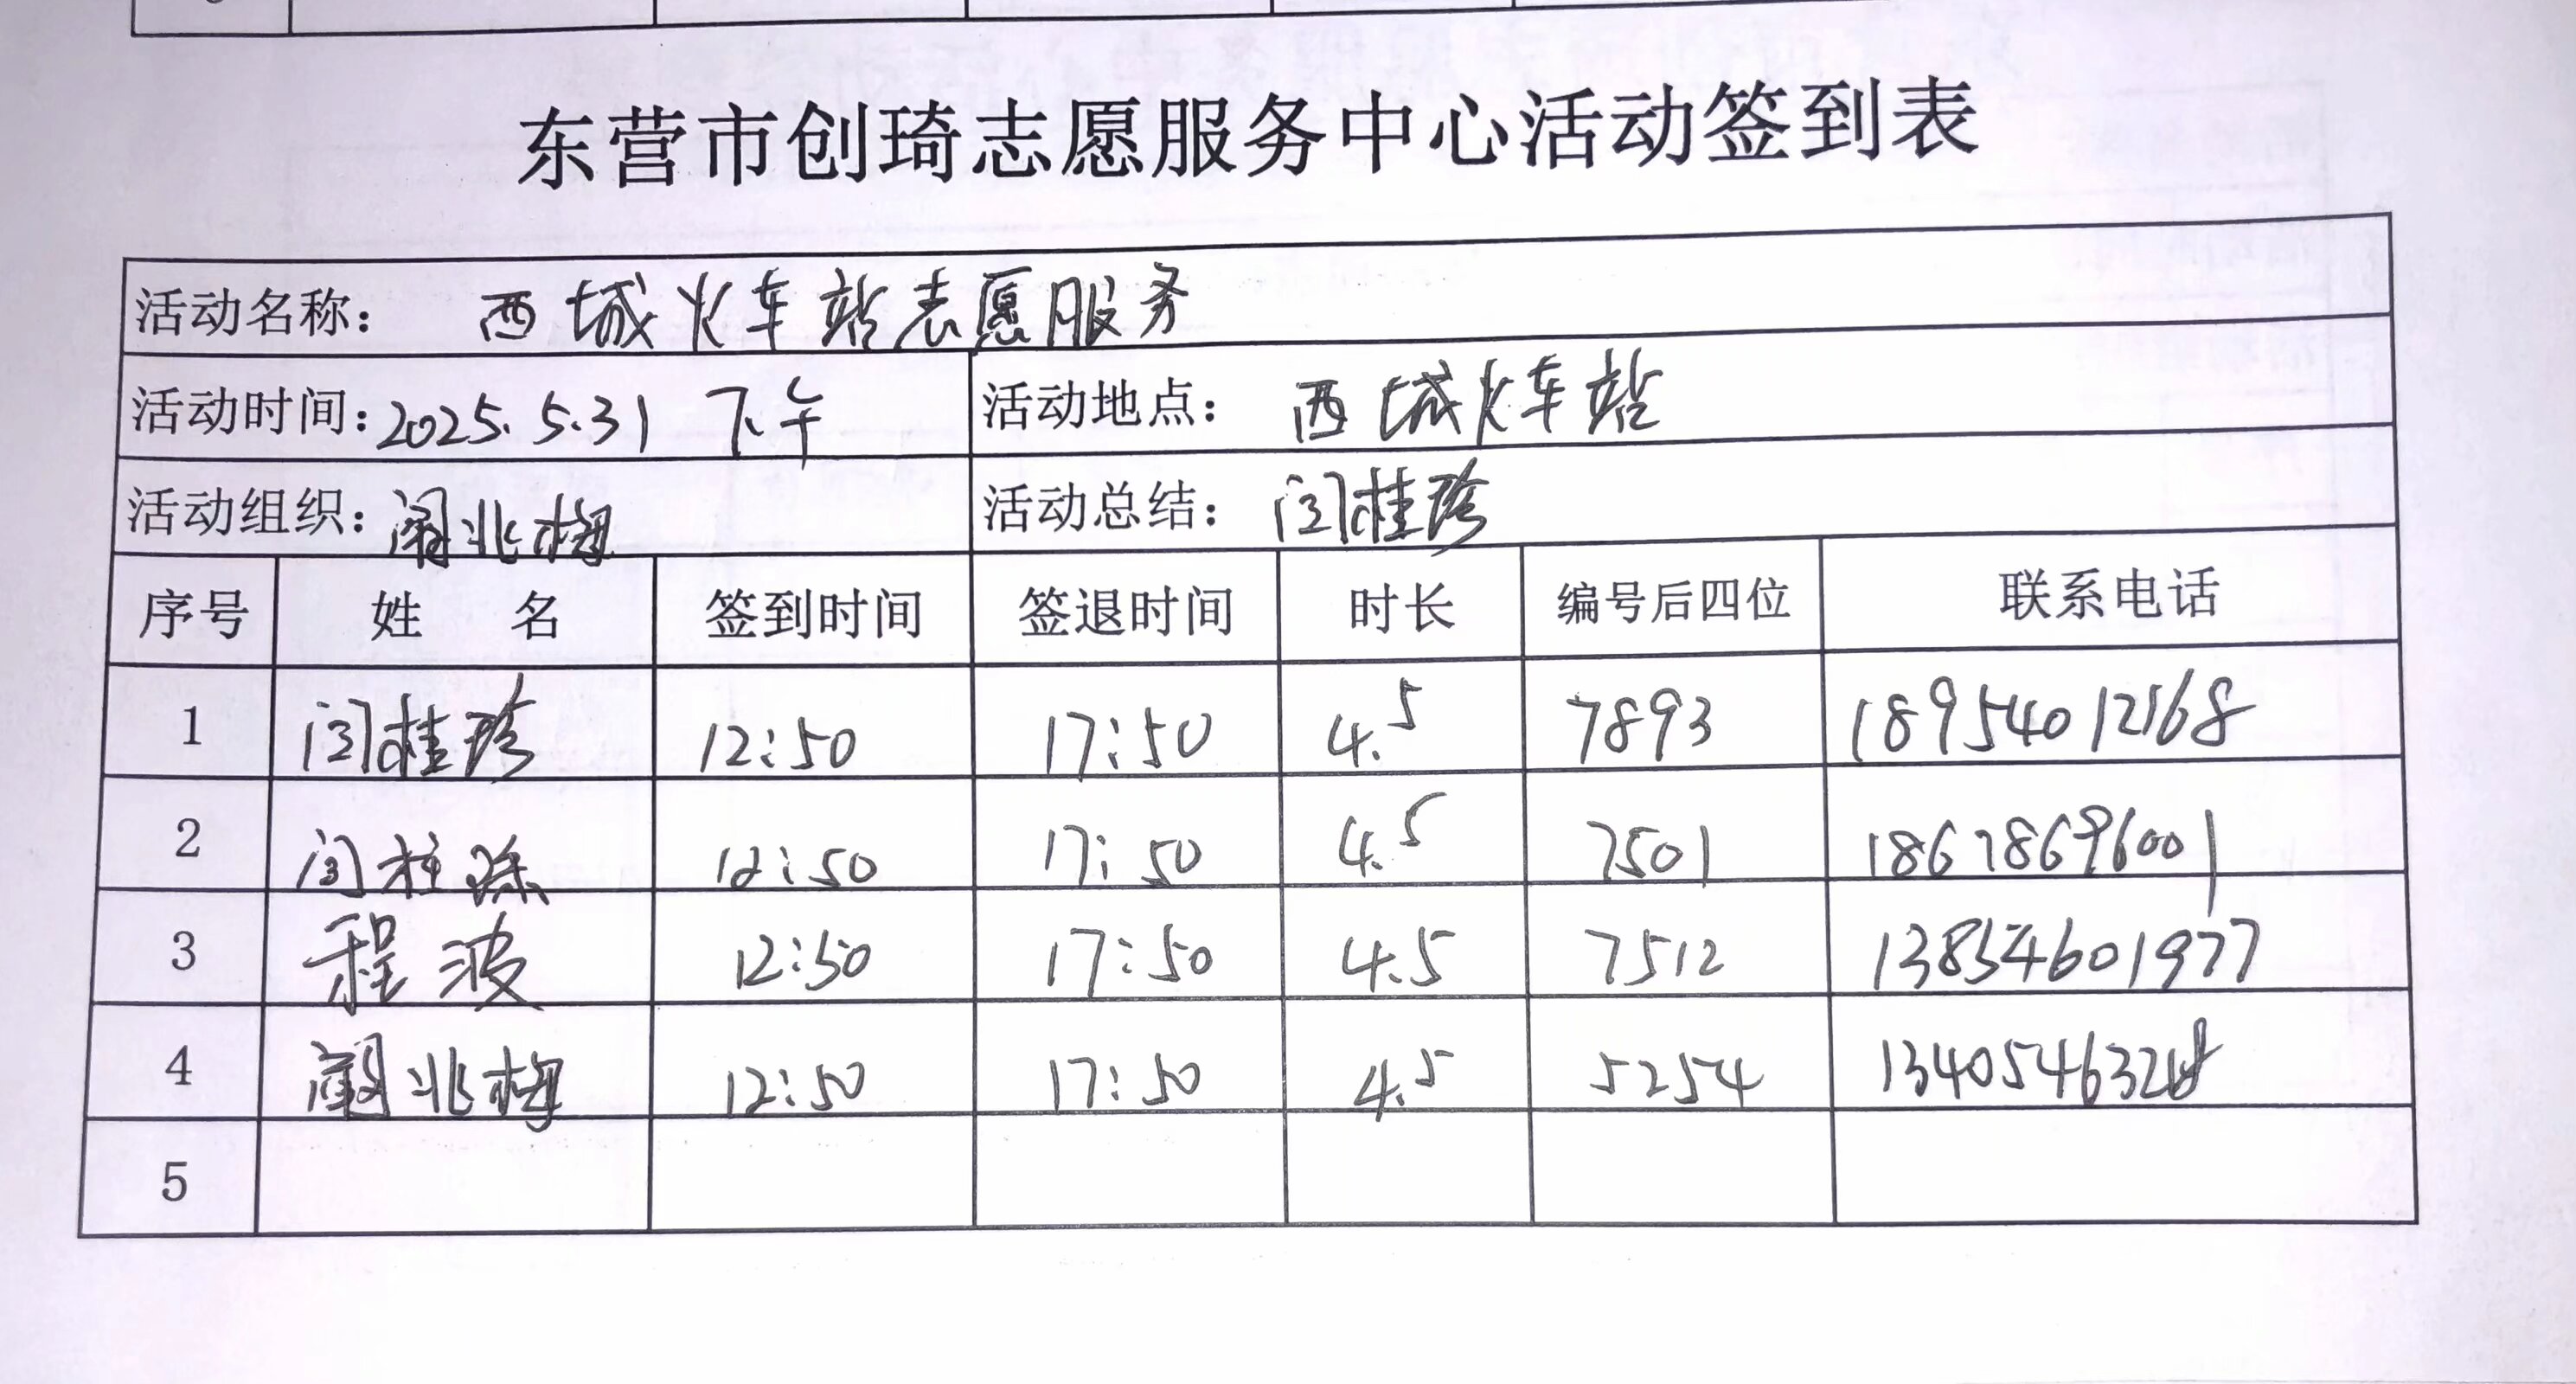 东营市创琦志愿服务中心活动签到表
活动名称： 西城火车站志愿服务
活动时间：2025.5.31 下午 活动地点： 西城火车站
活动组织： 活动总结： 闫桂珍
序号 姓 名 签到时间 签退时间 时长 编号后四位 联系电话
1 闫桂珍 12:50 17:50 4.5 7893 18954012168
2 12:50 17:50 4.5 7501 18678696001
3 程波 12:50 17:50 4.5 7512 13854601977
4 12:50 17:50 4.5 5254
5